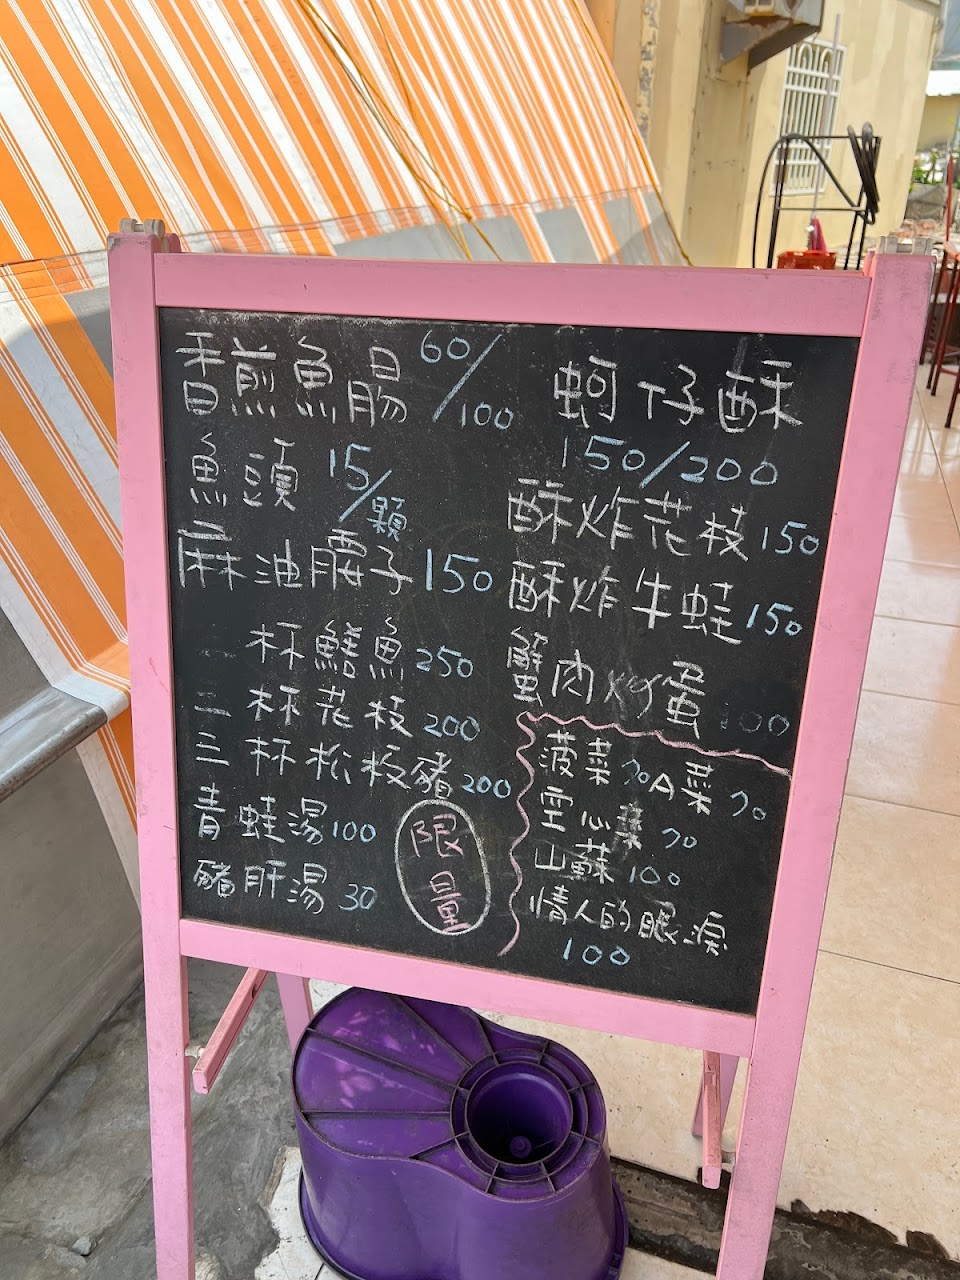 香煎魚腸 60/100
魚頭 15/顆
麻油腰子 150
三杯鱔魚 250
三杯花枝 200
三杯松板豬 200
青蛙湯 100
豬肝湯 30
限量
蚵仔酥
150/200
酥炸花枝 150
酥炸牛蛙 150
蟹肉炒蛋 100
菠菜 70 A菜 70
空心菜 70
山蘇 100
情人的眼淚
100